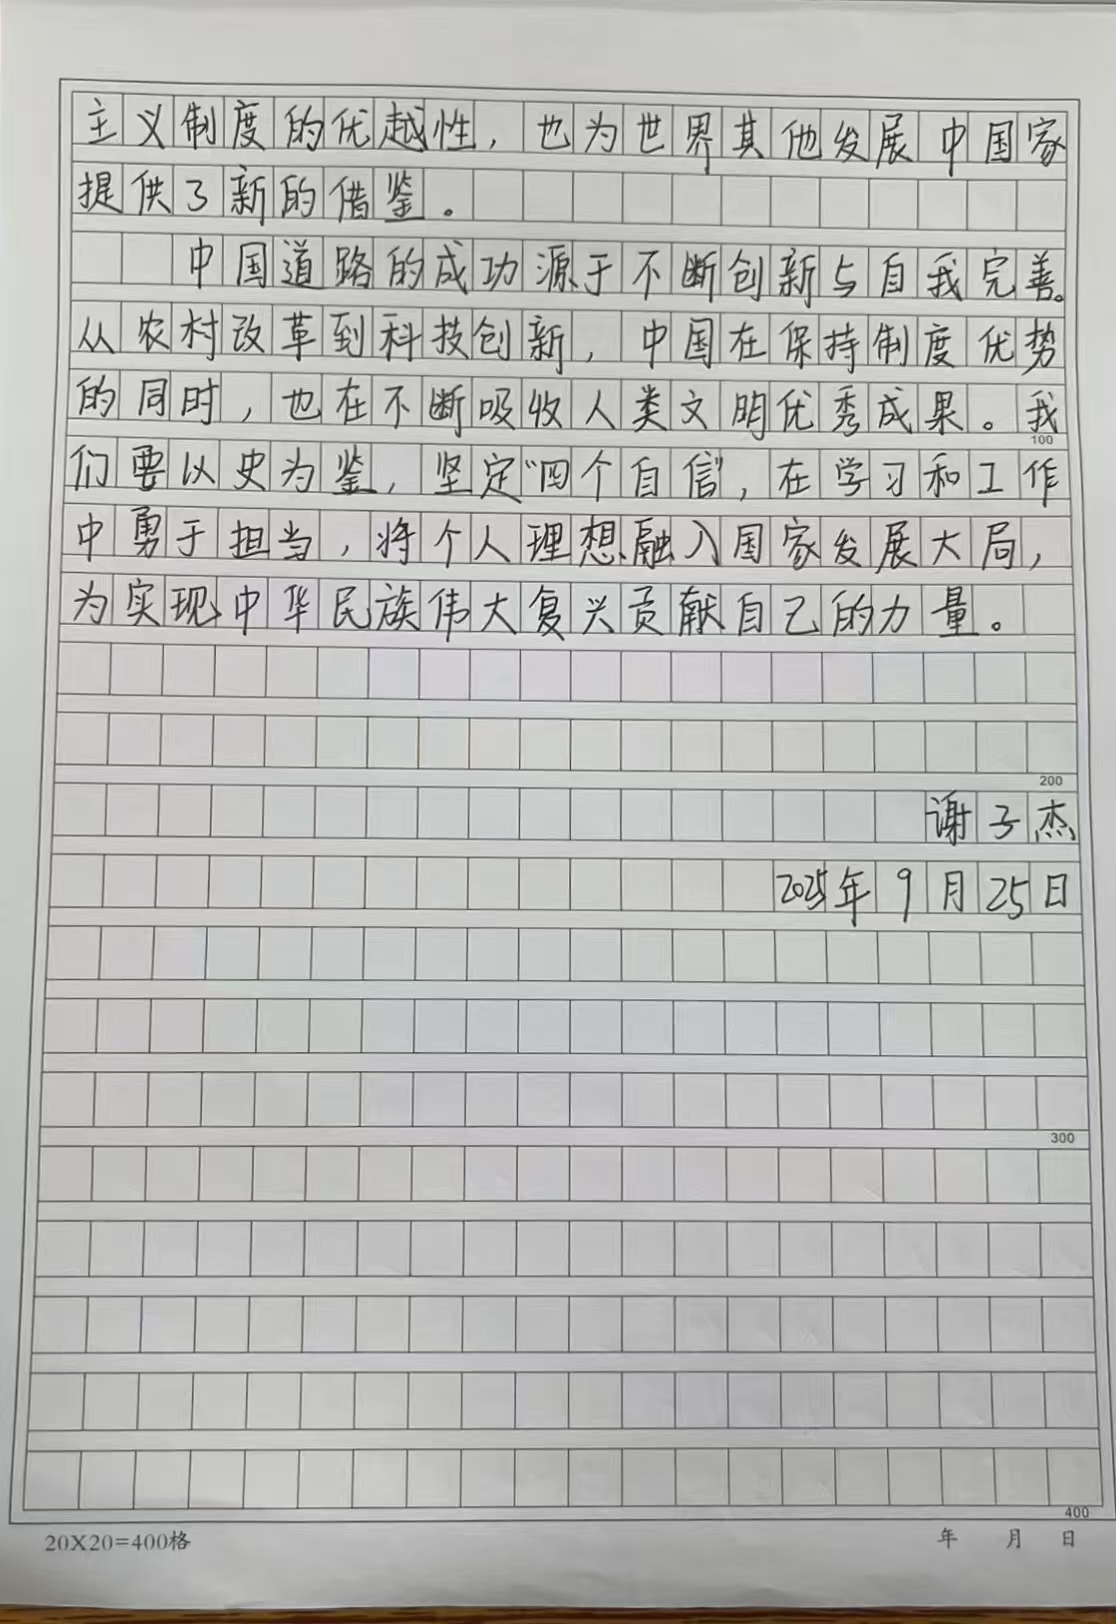 主义制度的优越性，也为世界其他发展中国家
提供了新的借鉴。
中国道路的成功源于不断创新与自我完善。
从农村改革到科技创新，中国在保持制度优势
的同时，也在不断吸收人类文明优秀成果。我
100
们要以史为鉴，坚定“四个自信”，在学习和工作
中勇于担当，将个人理想融入国家发展大局，
为实现中华民族伟大复兴贡献自己的力量。
200
谢子杰
2025年9月25日
300
400
20X20=400格 年 月 日